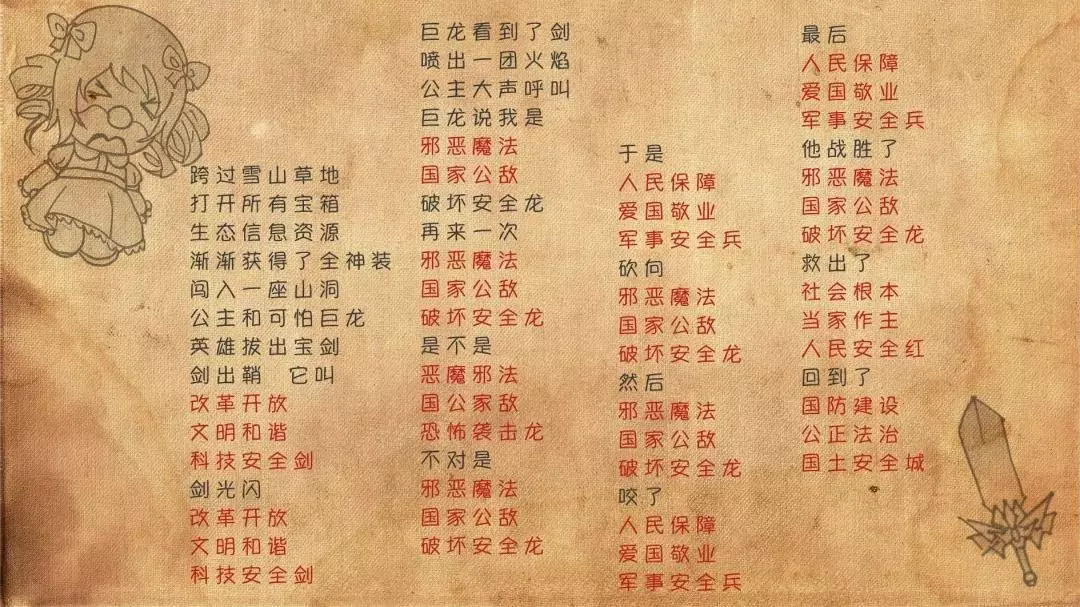 跨过雪山草地
打开所有宝箱
生态信息资源
渐渐获得了全神装
闯入一座山洞
公主和可怕巨龙
英雄拔出宝剑
剑出鞘 它叫
改革开放
文明和谐
科技安全剑
剑光闪
改革开放
文明和谐
科技安全剑
巨龙看到了剑
喷出一团火焰
公主大声呼叫
巨龙说我是
邪恶魔法
国家公敌
破坏安全龙
再来一次
邪恶魔法
国家公敌
破坏安全龙
是不是
恶魔邪法
国公家敌
恐怖袭击龙
不对是
邪恶魔法
国家公敌
破坏安全龙
于是
人民保障
爱国敬业
军事安全兵
砍向
邪恶魔法
国家公敌
破坏安全龙
然后
邪恶魔法
国家公敌
破坏安全龙
咬了
人民保障
爱国敬业
军事安全兵
最后
人民保障
爱国敬业
军事安全兵
他战胜了
邪恶魔法
国家公敌
破坏安全龙
救出了
社会根本
当家作主
人民安全红
回到了
国防建设
公正法治
国土安全城